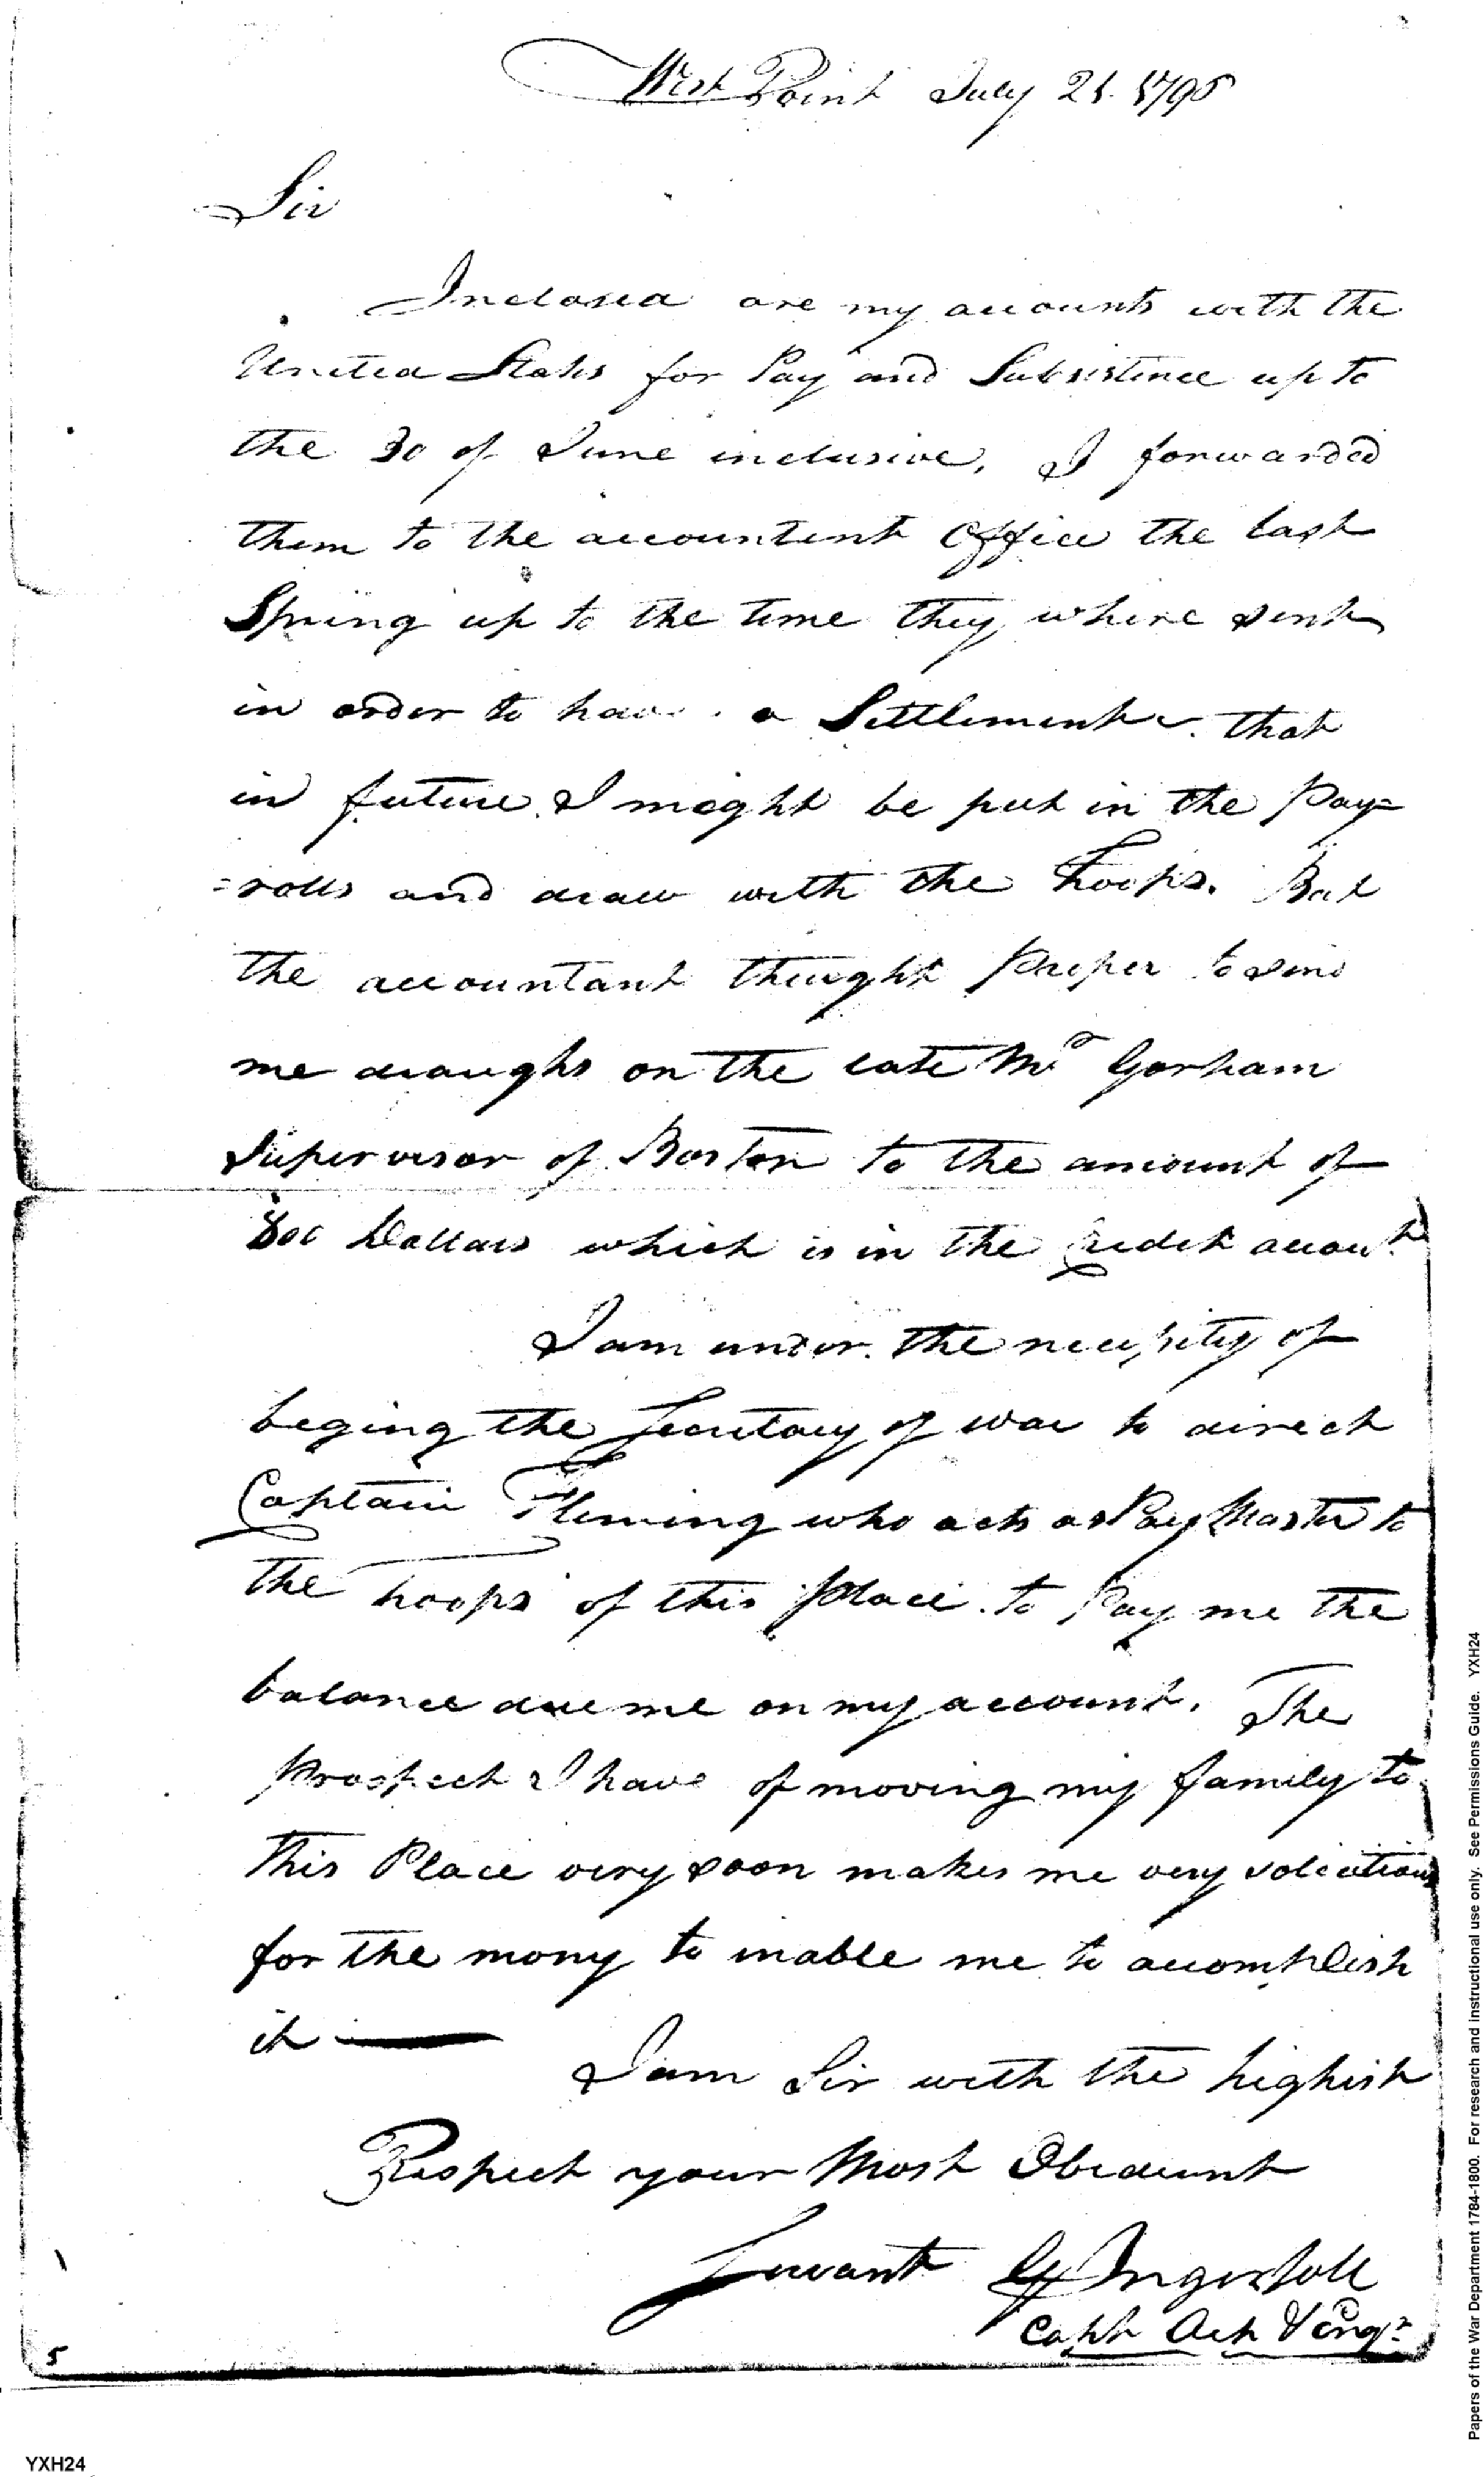 West Point July 21. 1796
Sir
Inclosed are my accounts with the
United States for Pay and Subsistence up to
the 30 of June inclusive, I forwarded
them to the accountent Office the last
Spring up to the time they where sent
in order to have a Settlement that
in future I might be put in the Pay=
=rolls and draw with the Troops. But
the accountant thought Proper to send
me draughs on the late Mr Gorham
Supervisor of Boston to the amount of
800 Dollars which is in the Credit account
I am under the necessity of
beging the Secretary of war to direct
Captain Fleming who acts as Pay Master to
the troops of this Place to Pay me the
balance due me on my account. The
Prospect I have of moving my family to
this Place very soon makes me very
for the mony to inable me to accomplish
it —
I am Sir with the highest
Respect your Most Obedient
Servant G Ingersoll
Capt &
5
YXH24
Papers of the War Department 1784-1800. For research and instructional use only. See Permissions Guide. YXH24